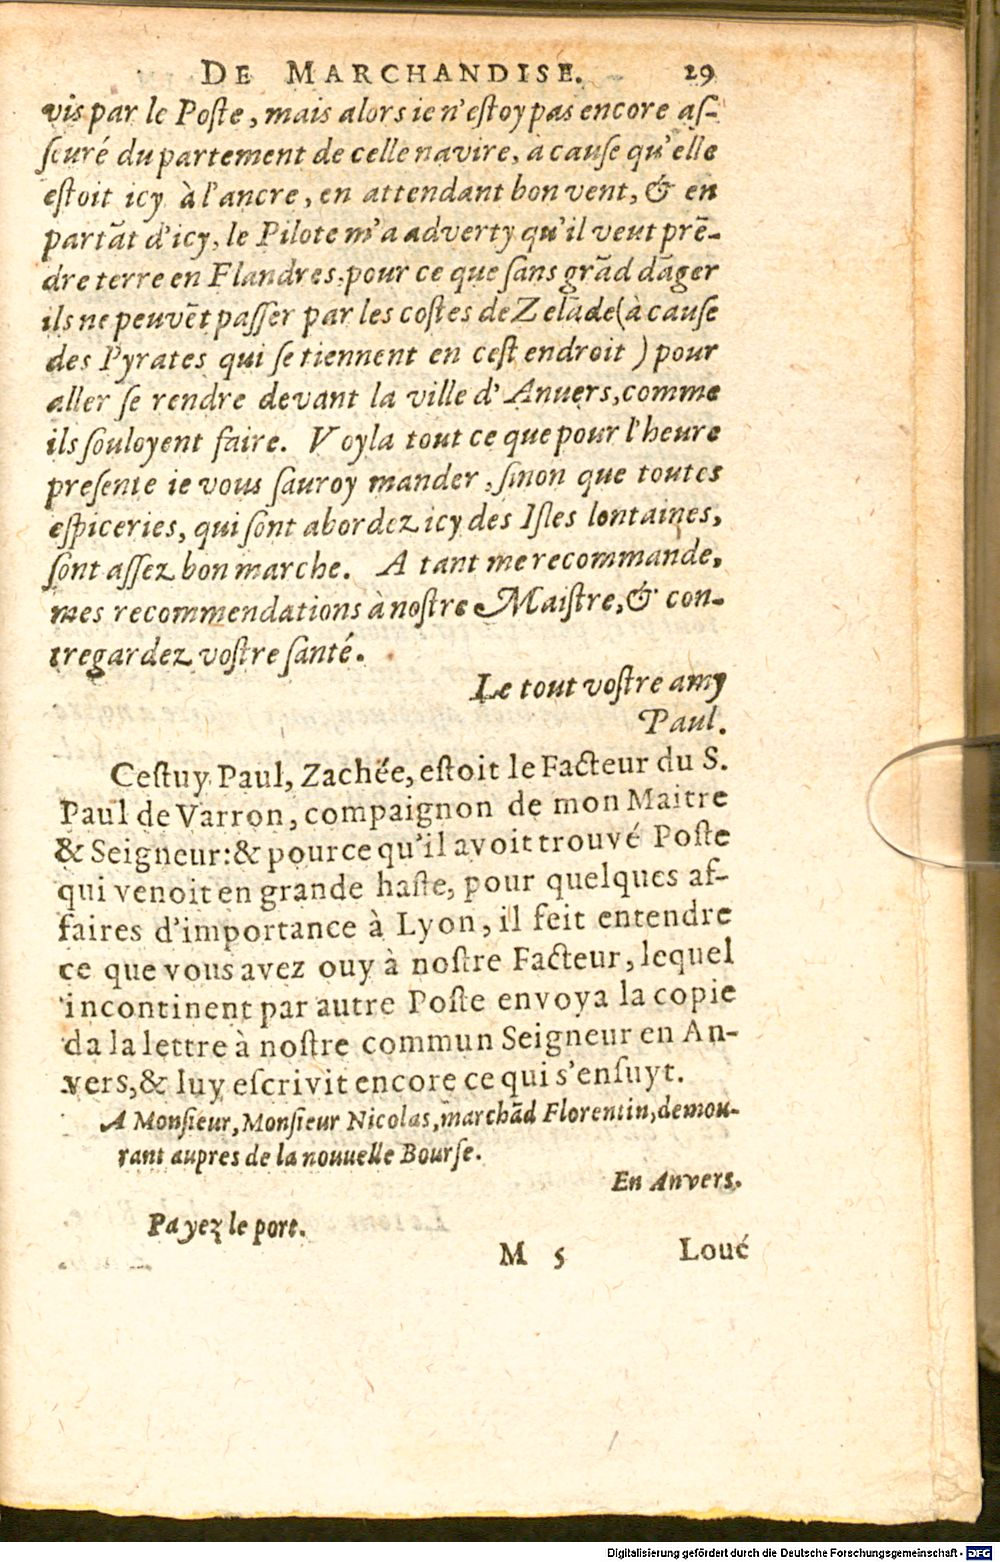 DE MARCHANDISE. 29
vis par le Poſte, mais alors ie n'eſtoy pas encore aſ-
ſeuré du partement de celle navire, a cauſe qu'elle
eſtoit icy à l'ancre, en attendant bon vent, & en
partāt d'icy, le Pilote m'a adverty qu'il veut prē-
dre terre en Flandres, pour ce que ſans grād dāger
ils ne peuvēt paſſer par les coſtes de Zelāde (à cauſe
des Pyrates qui ſe tiennent en ceſt endroit ) pour
aller ſe rendre devant la ville d'Anuers, comme
ils ſouloyent faire. Voyla tout ce que pour l'heure
preſente ie vous ſauroy mander, ſinon que toutes
eſpiceries, qui ſont abordez icy des Iſles lontaines,
ſont aſſez bon marche. A tant me recommande,
mes recommendations à noſtre Maiſtre, & con-
tregardez voſtre ſanté.
Le tout voſtre amy
Paul.
Ceſtuy Paul, Zachée, eſtoit le Facteur du S.
Paul de Varron, compaignon de mon Maitre
& Seigneur: & pource qu'il avoit trouvé Poſte
qui venoit en grande haſte, pour quelques af-
faires d'importance à Lyon, il feit entendre
ce que vous avez ouy à noſtre Facteur, lequel
incontinent par autre Poſte envoya la copie
da la lettre à noſtre commun Seigneur en An-
vers, & luy eſcrivit encore ce qui s'enſuyt.
A Monſieur, Monſieur Nicolas, marchād Florentin, demou-
rant aupres de la nouuelle Bourſe.
En Anvers.
Payez le port.
M 5 Loué
Digitalisierung gefördert durch die Deutsche Forschungsgemeinschaft - DFG